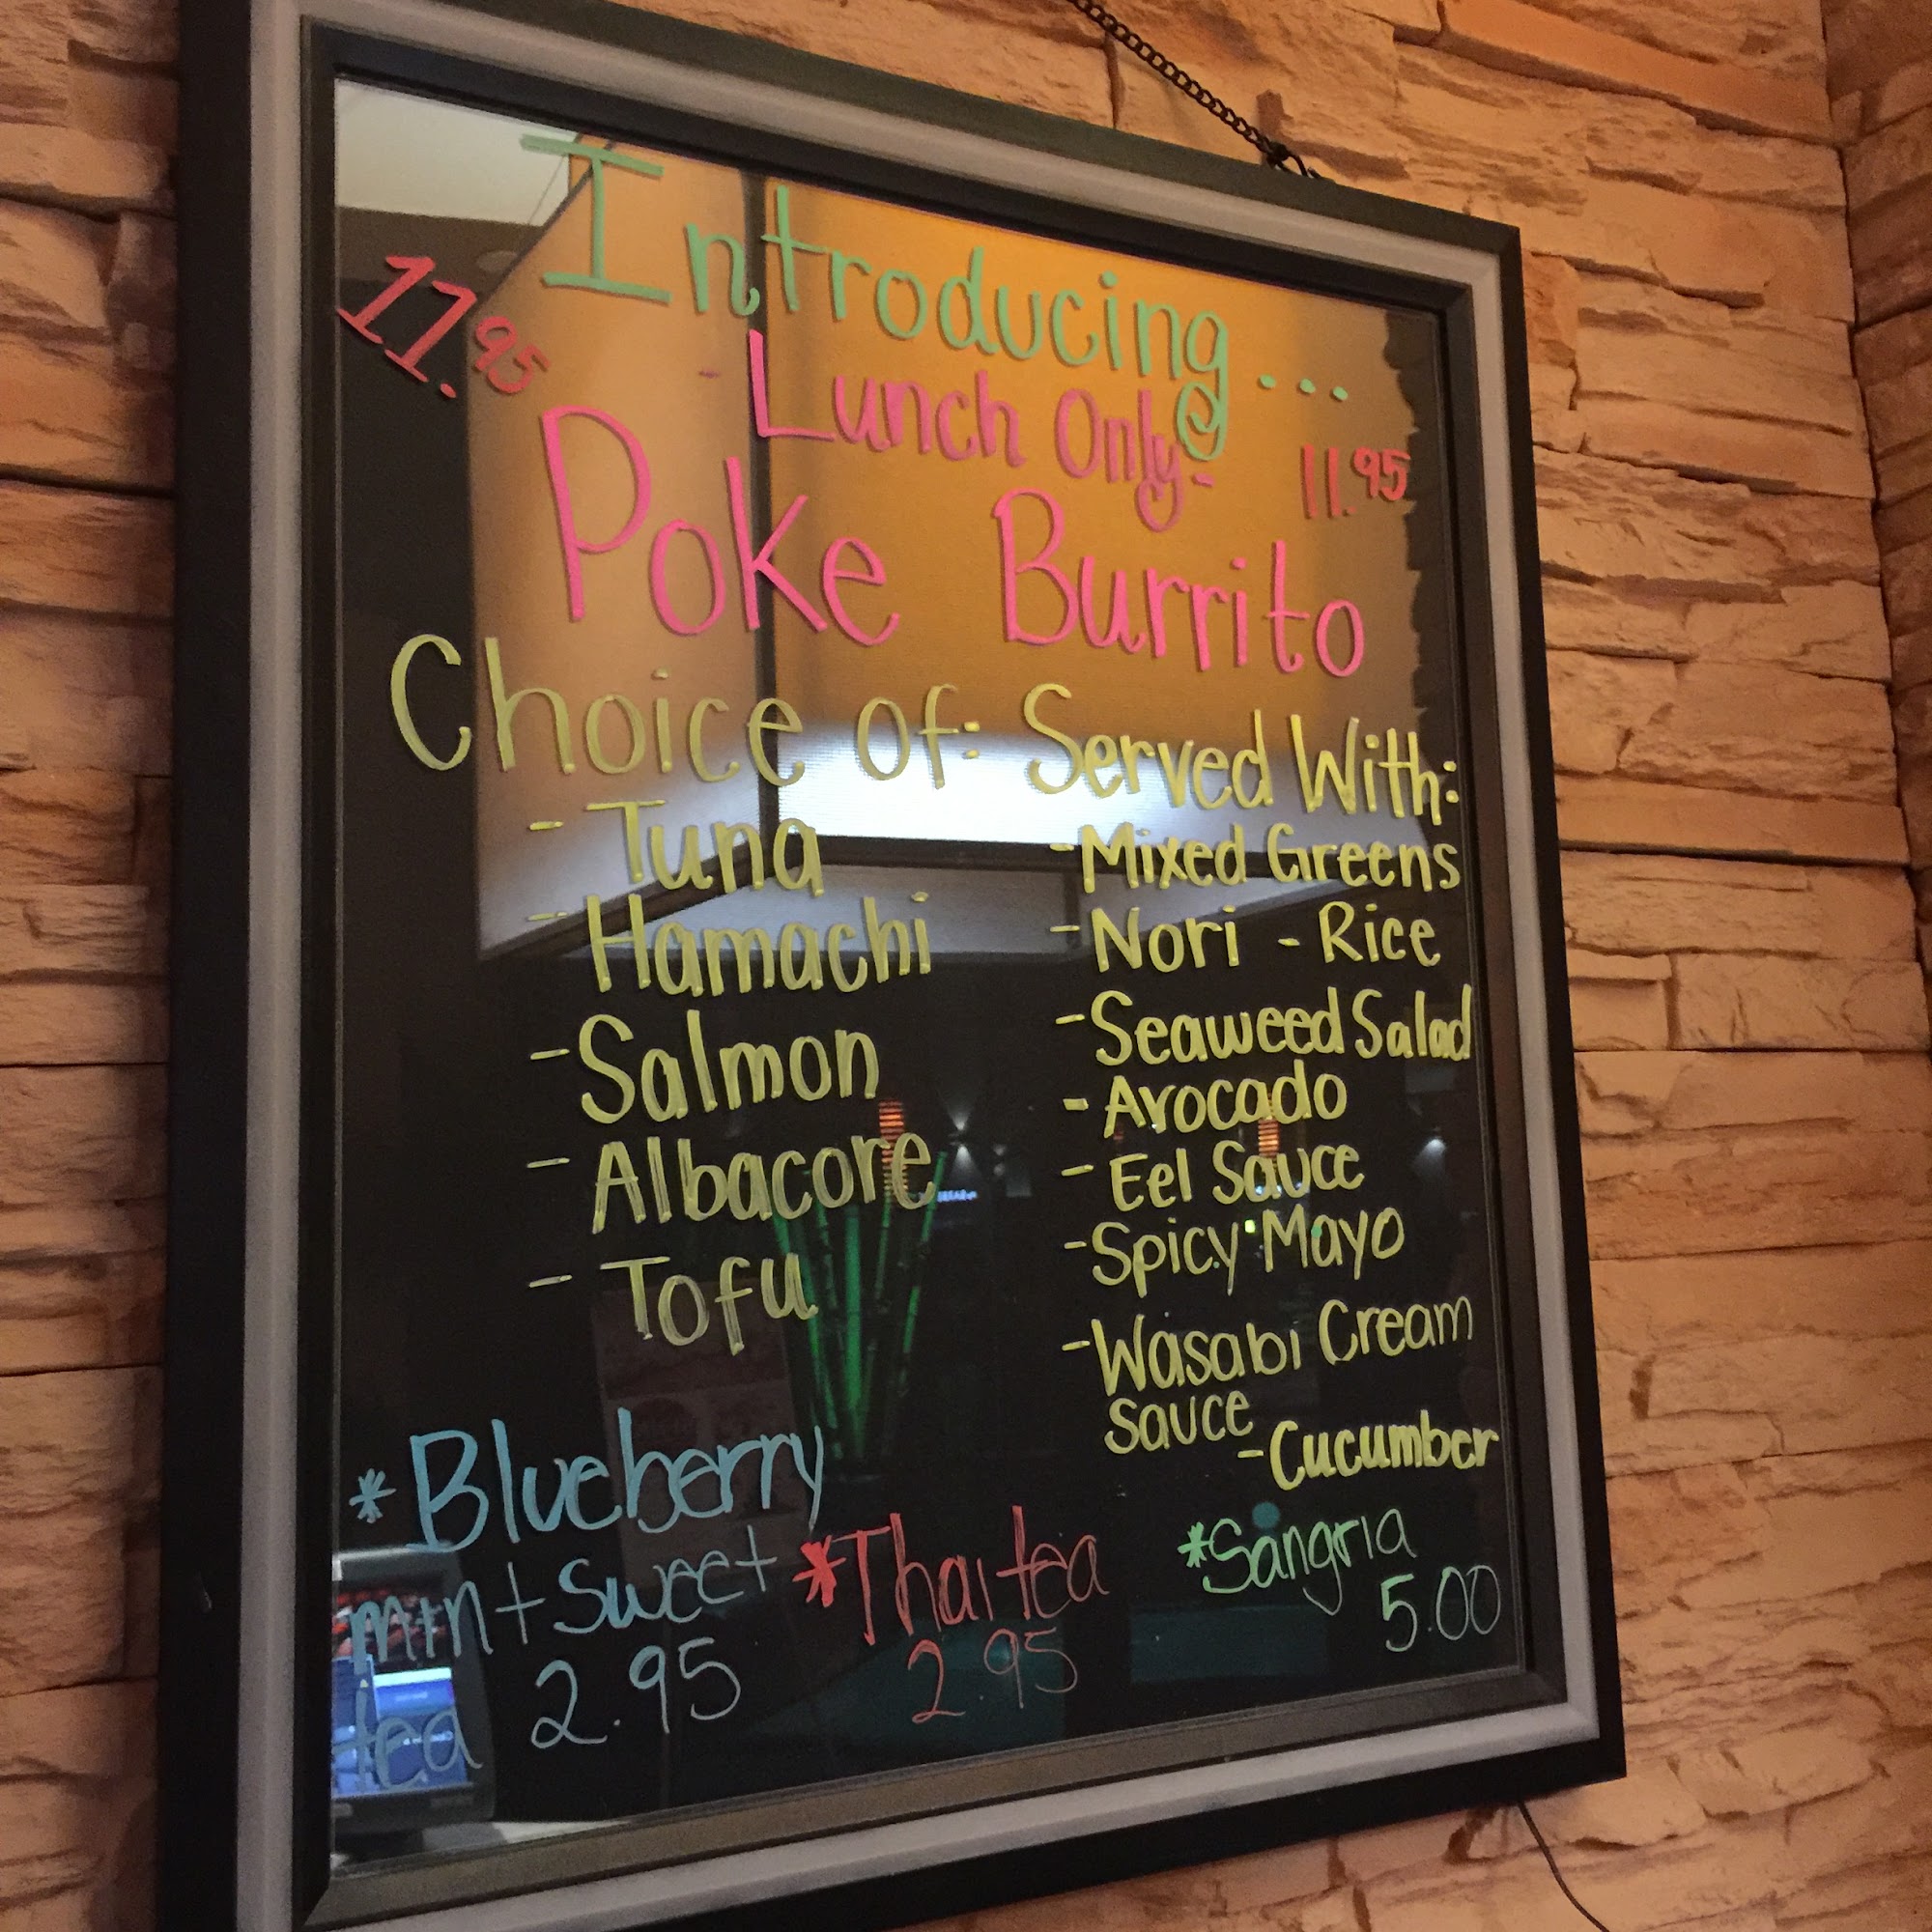 Introducing...
11.95
- Lunch Only -
11.95
Poke Burrito
Choice of:
- Tuna
- Hamachi
- Salmon
- Albacore
- Tofu
Served With:
- Mixed Greens
- Nori - Rice
- Seaweed Salad
- Avocado
- Eel Sauce
- Spicy Mayo
- Wasabi Cream
Sauce
- Cucumber
*Blueberry
mint Sweet
tea 2.95
*Thai tea
2.95
*Sangria
5.00